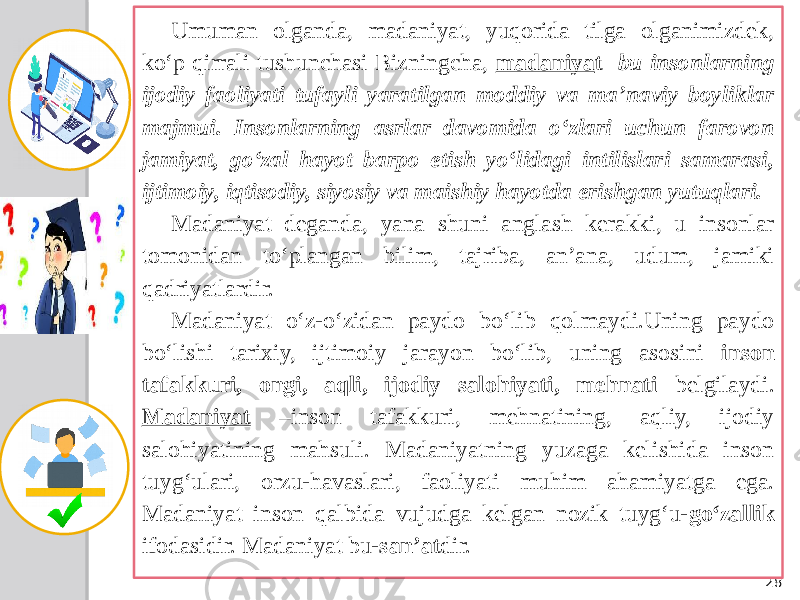 Umuman olganda, madaniyat, yuqorida tilga olganimizdek,
ko‘p qirrali tushunchasi Bizningcha, madaniyat bu insonlarning
ijodiy faoliyati tufayli yaratilgan moddiy va ma’naviy boyliklar
majmui. Insonlarning asrlar davomida o‘zlari uchun farovon
jamiyat, go‘zal hayot barpo etish yo‘lidagi intilislari samarasi,
ijtimoiy, iqtisodiy, siyosiy va maishiy hayotda erishgan yutuqlari.
Madaniyat deganda, yana shuni anglash kerakki, u insonlar
tomonidan to‘plangan bilim, tajriba, an’ana, udum, jamiki
qadriyatlardir.
Madaniyat o‘z-o‘zidan paydo bo‘lib qolmaydi.Uning paydo
bo‘lishi tarixiy, ijtimoiy jarayon bo‘lib, uning asosini inson
tafakkuri, ongi, aqli, ijodiy salohiyati, mehnati belgilaydi.
Madaniyat –inson tafakkuri, mehnatining, aqliy, ijodiy
salohiyatining mahsuli. Madaniyatning yuzaga kelishida inson
tuyg‘ulari, orzu-havaslari, faoliyati muhim ahamiyatga ega.
Madaniyat inson qalbida vujudga kelgan nozik tuyg‘u-go‘zallik
ifodasidir. Madaniyat bu-san’atdir.
ARXIV.UZ
ARXIV.UZ
ARXIV.UZ
ARXIV.UZ